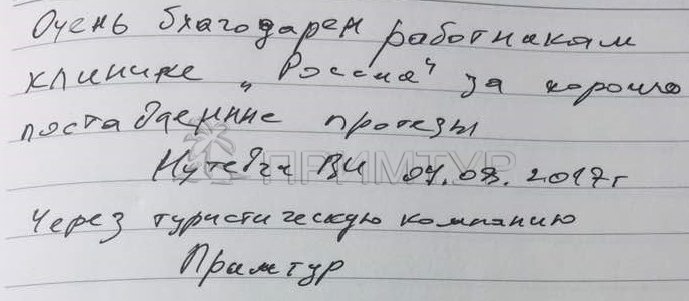 Очень благодарен работникам
клинике „Россия" за хорошо
поставленные протезы
ВИ 2017г
Через туристическую компанию
Примтур
ПРИМТУР